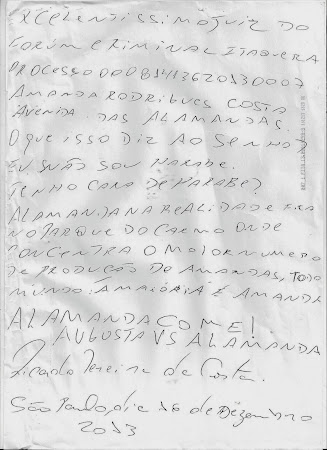 XCELENTISSIMO JUIZ DO
FORUM CRIMINAL ITAQUERA
PROCESSO 00081413620130007
AMANDA RODRIGUES COSTA
AVENIDA DAS ALAMANDAS.
O QUE ISSO DIZ AO SENHOR?
EU NÃO SOU HARABE.
TENHO CARA DE HARABE?
ALAMANDA NA REALIDADE FICA
NO PARQUE DO CARMO ONDE
CONCENTRA O MAIOR NUMERO
DE PRODUÇÃO DE AMANDAS, TODO
MUNDO. AMAIORIA É AMANDA
ALAMANDA COME!
AUGUSTA VS ALAMANDA
Ricardo Pereira da Costa.
São Paulo, dia 16 de Dezembro
2013